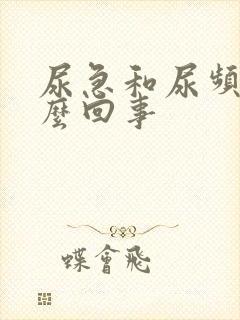 尿急和尿頻
麼回事
蝶會飛